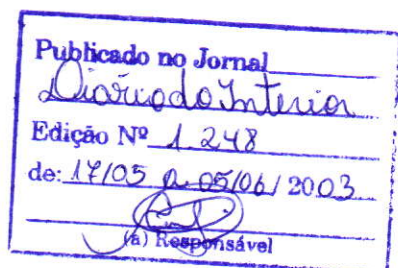 Publicado no Jornal
Diário do Interior
Edição Nº 1.248
de: 17/05 a 05/06/ 2003
(a) Responsável